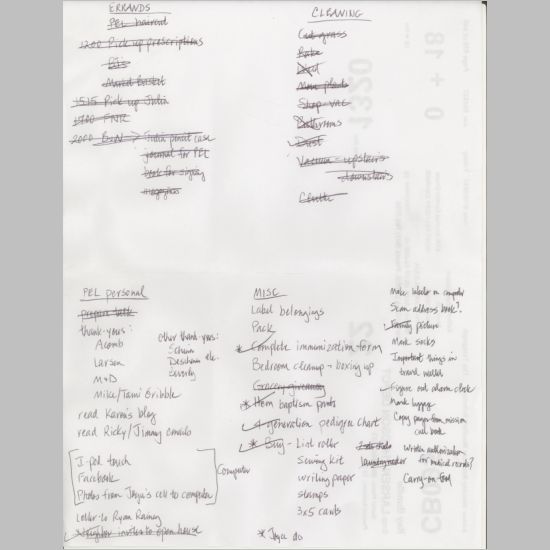 ERRANDS
PEL haircut
1200 Pick up prescriptions
BJs
Market Basket
1515 Pick up Julia
1700 FNR
2000 B+N → Julia pencil case
journal for PEL
book for signing
magazine
CLEANING
Cut grass
Rake
Mow
Shop-vac
Bathrooms
Dust
Vacuum - upstairs
downstairs
PEL personal
prepare talk
thank-yous:
Acomb
Larsen
M+D
Mike/Tami Gribble
other thank-yous:
Deschaine etc.
Beverly
read Karen's blog
read Ricky/Jimmy emails
I-pod touch
Facebook
Photos from Joyce's cell to computer
Computer
Letter to Ryan Rainey
Neighbor invites to open house
MISC
Label belongings
Pack
* Complete immunization form
Bedroom cleanup - boxing up
Grocery giveaway
* Hem baptism pants
4 generation pedigree chart
* Buy - Lint roller
Sewing kit
writing paper
stamps
3x5 cards
* Joyce do
Make labels on computer
Scan address book?
Family picture
Mark socks
Important things in
travel wallet
Figure out alarm clock
Mark luggage
Copy pages from mission
call book
Written authorization
for medical records?
Carry-on food